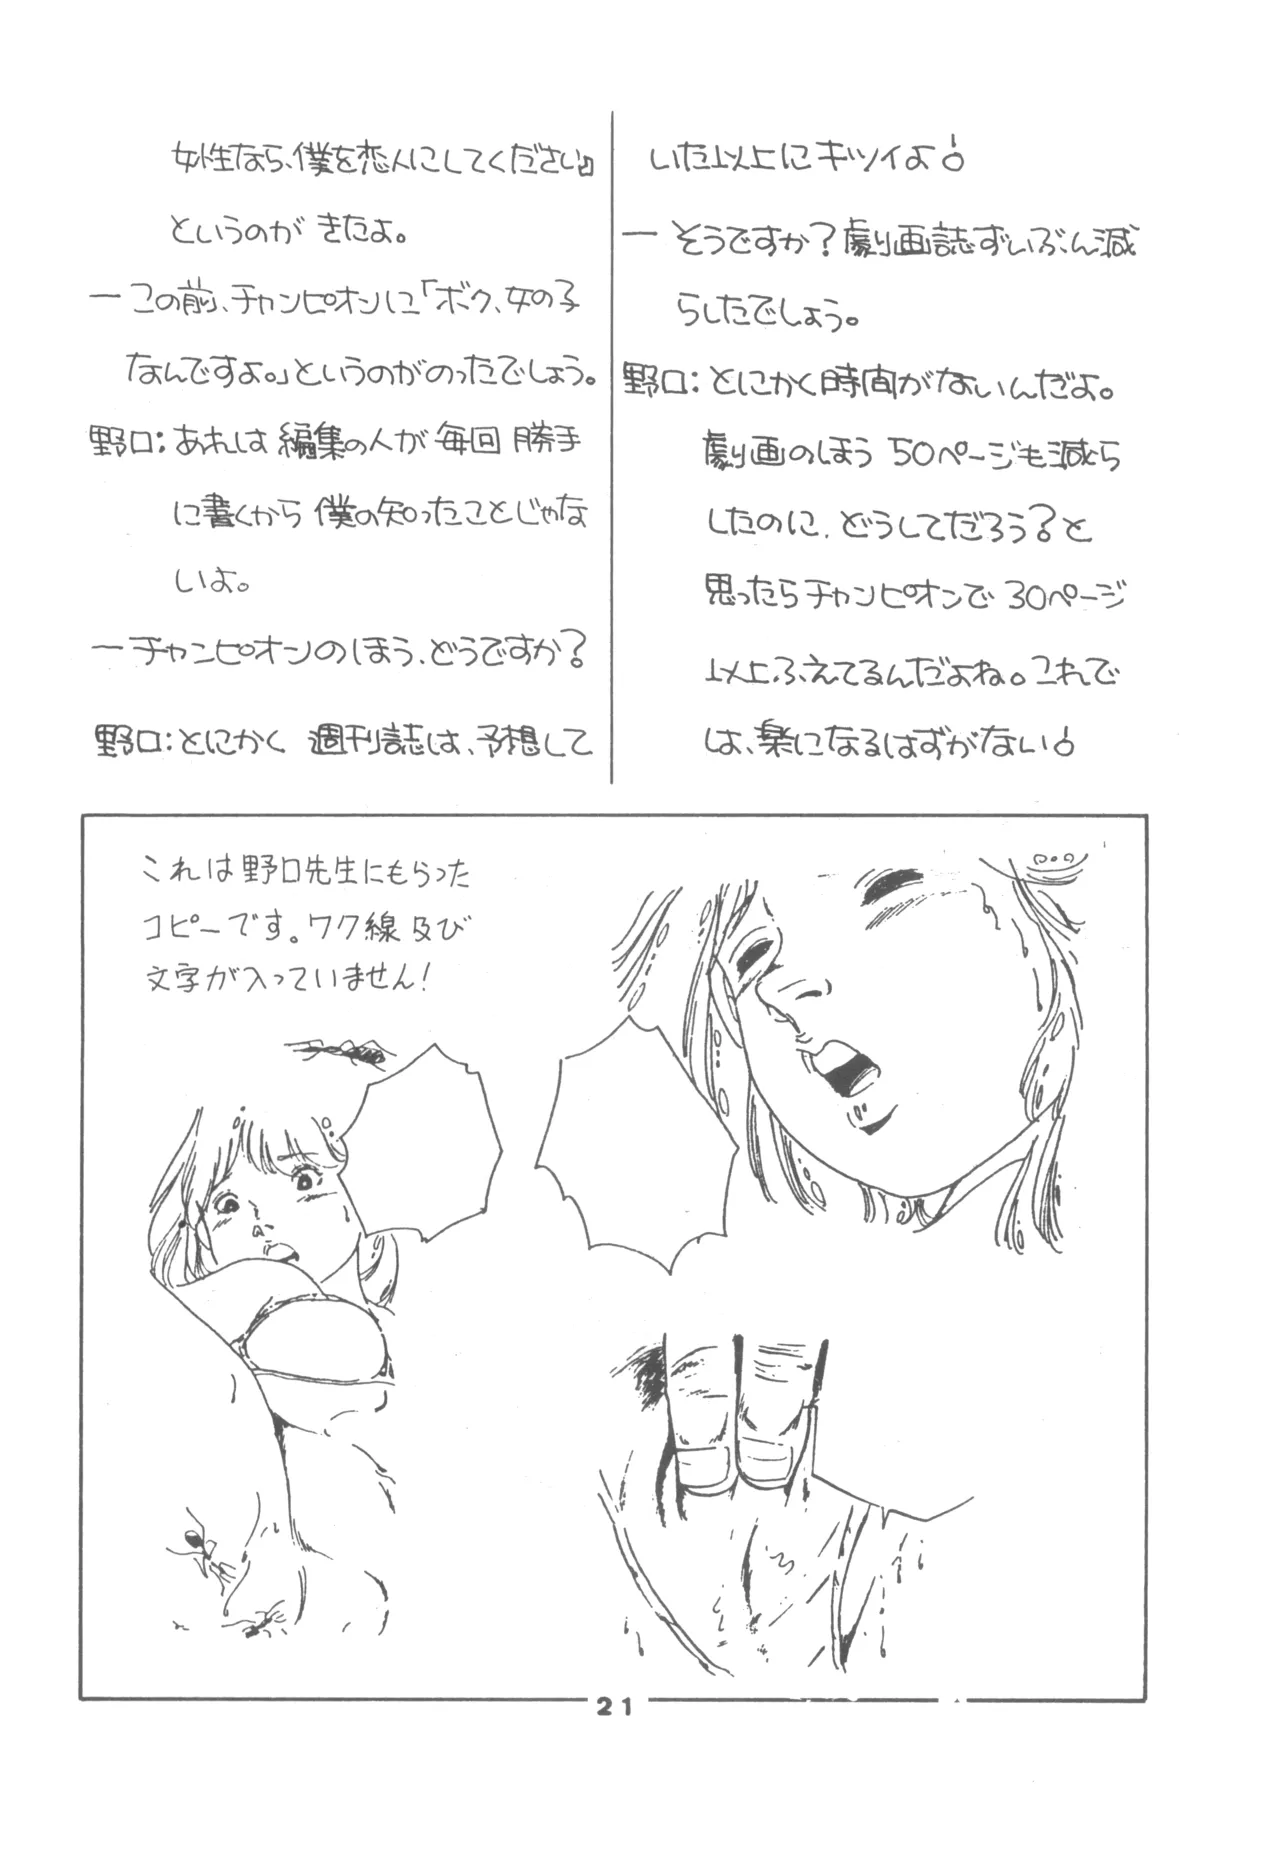 女性なら、僕を恋人にしてください』
というのが きたよ。
ーこの前、チャンピオンに「ボク、女の子
なんですよ。」というのがのったでしょう。
野口：あれは 編集の人が 毎回 勝手
に書くから 僕の知ったことじゃな
いよ。
ーチャンピオンのほう、どうですか？
野口：とにかく 週刊誌は、予想して
いた以上にキツイよ！
ー そうですか？劇画誌ずいぶん減
らしたでしょう。
野口：とにかく時間がないんだよ。
劇画のほう 50ページも減ら
したのに、どうしてだろう？と
思ったらチャンピオンで 30ページ
以上ふえてるんだよね。これで
は、楽になるはずがない！
これは野口先生にもらった
コピーです。ワク線 及び
文字が入っていません！
21